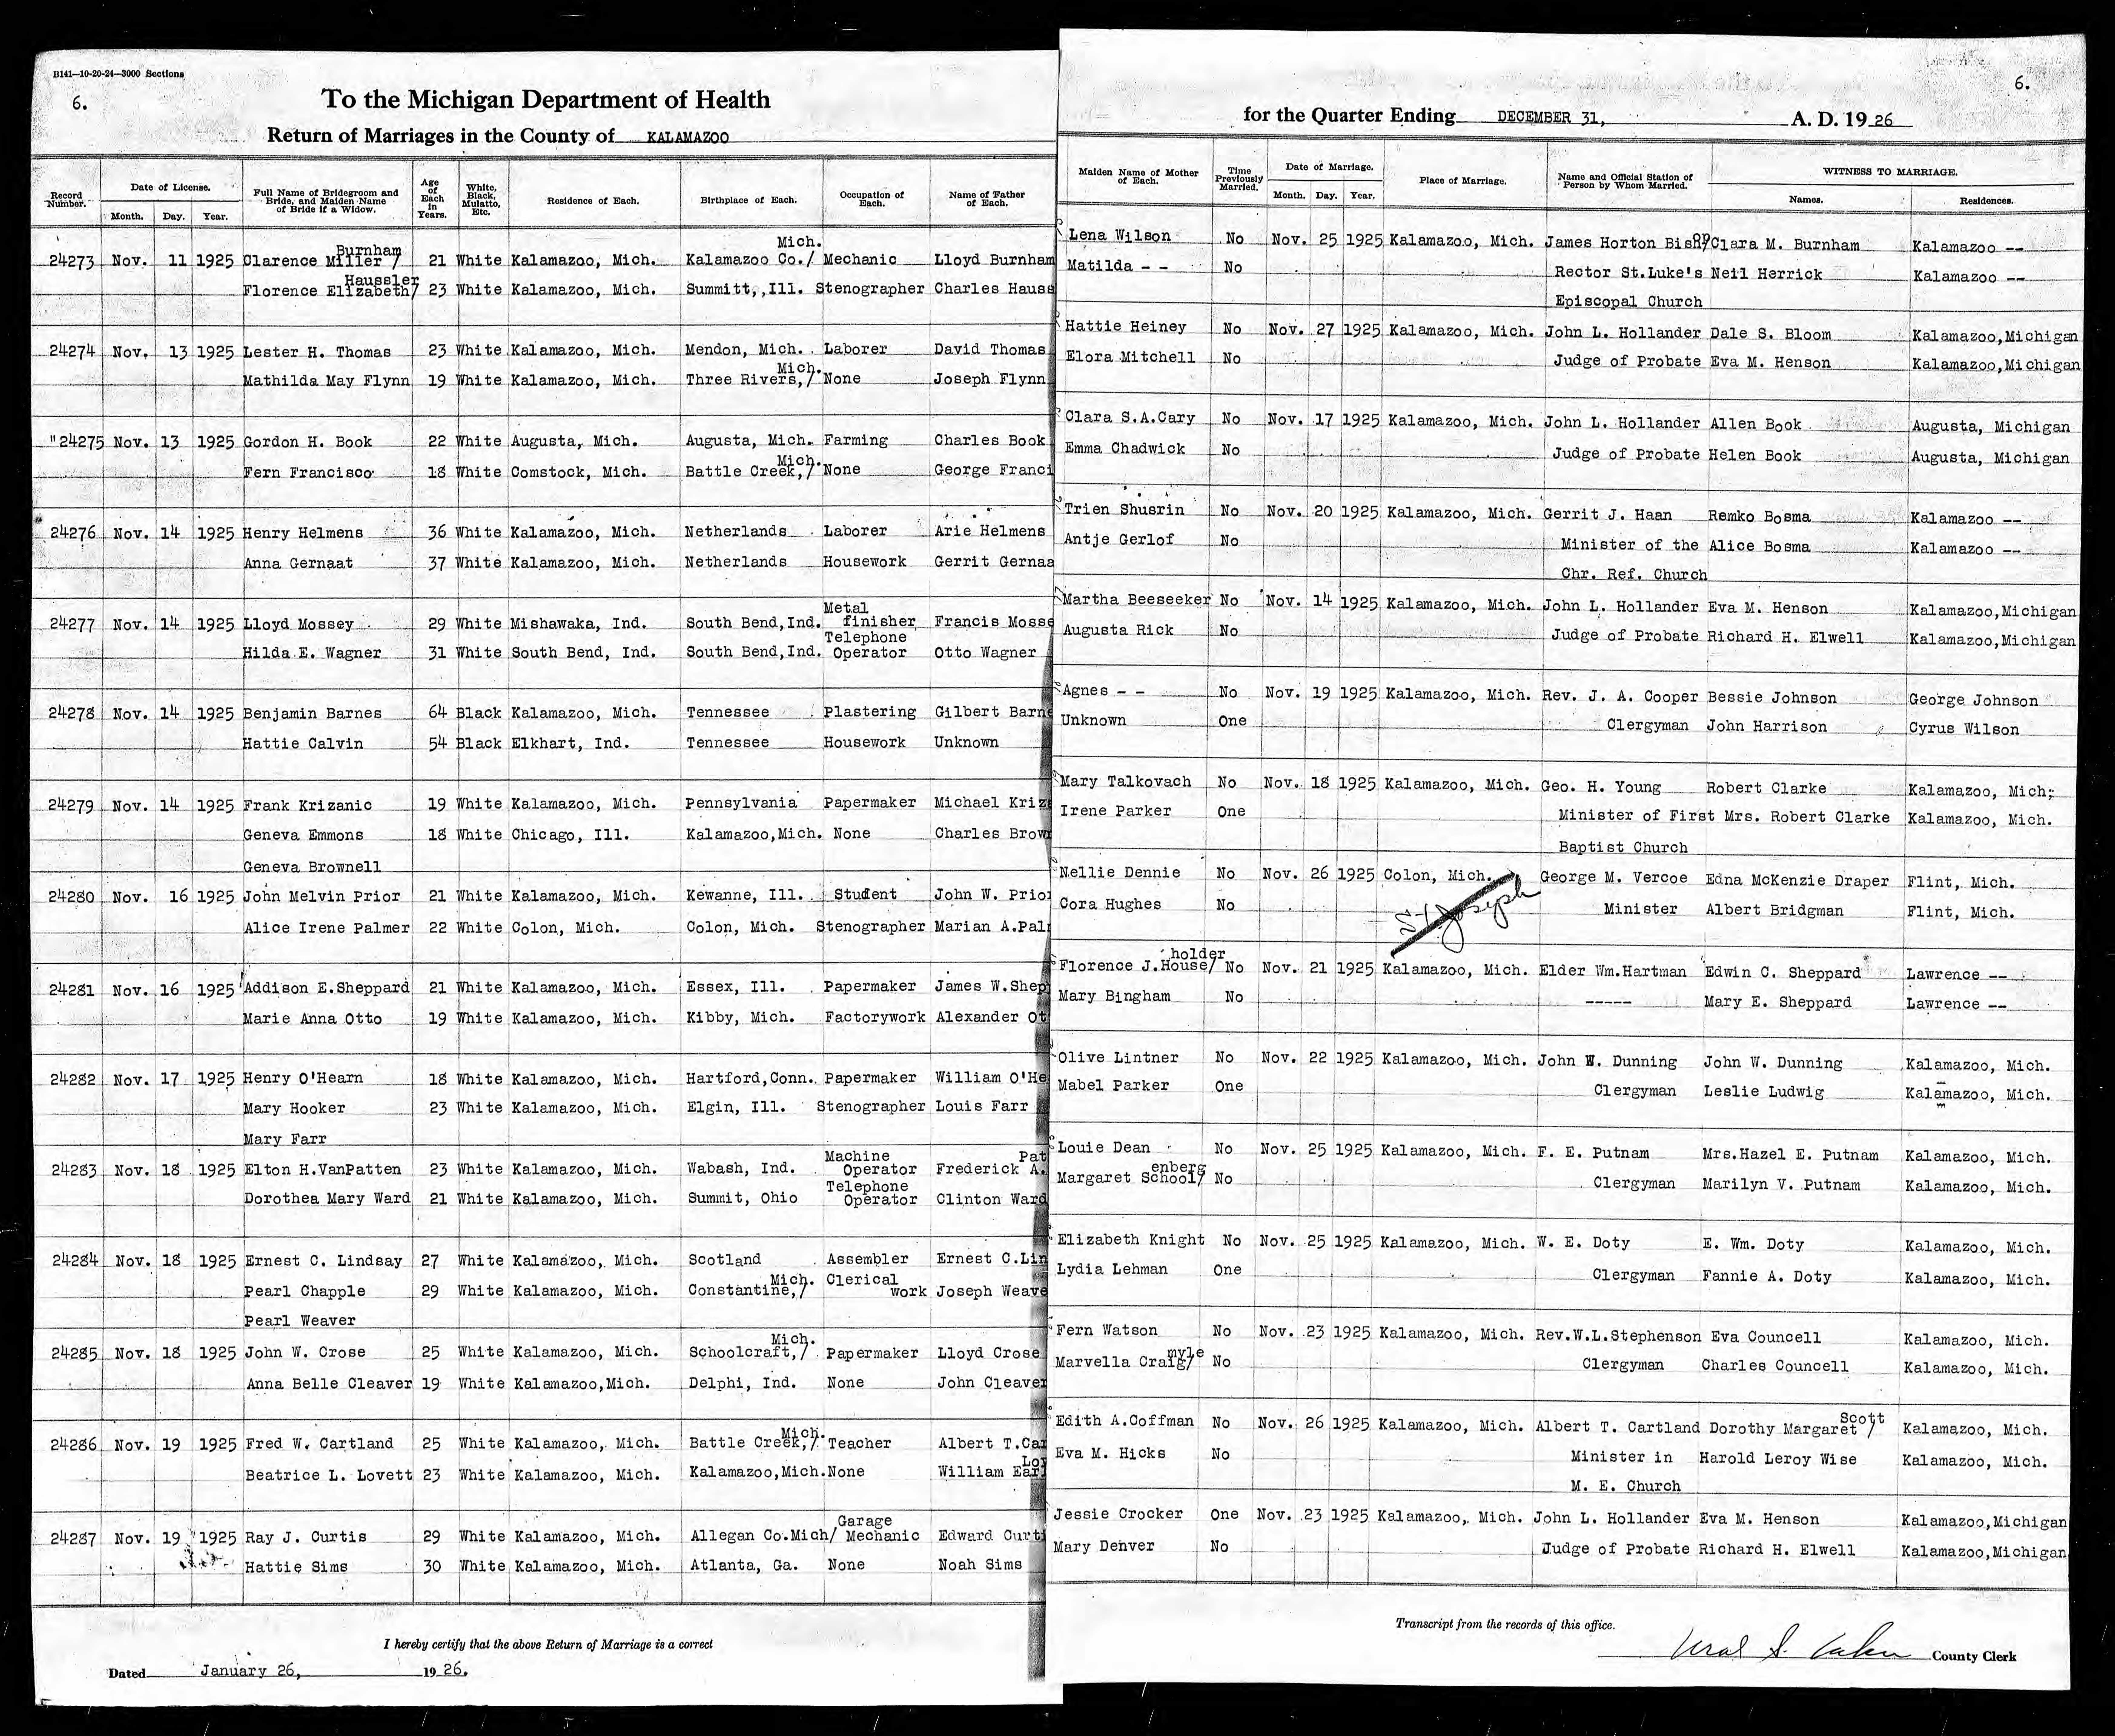 B141—10-20-24—3000 Sections
6.
To the Michigan Department of Health
Return of Marriages in the County of KALAMAZOO
6.
for the Quarter Ending DECEMBER 31, A. D. 19 26
Record Number.
Date of License.
Month. Day. Year.
Full Name of Bridegroom and Bride, and Maiden Name of Bride if a Widow.
Age of Each in Years.
White, Black, Mulatto, Etc.
Residence of Each.
Birthplace of Each.
Occupation of Each.
Name of Father of Each.
Maiden Name of Mother of Each.
Time Previously Married.
Date of Marriage.
Month. Day. Year.
Place of Marriage.
Name and Official Station of Person by Whom Married.
WITNESS TO MARRIAGE.
Names. Residences.
Burnham Mich.
24273 Nov. 11 1925 Clarence Miller / 21 White Kalamazoo, Mich. Kalamazoo Co./ Mechanic Lloyd Burnham Lena Wilson No Nov. 25 1925 Kalamazoo, Mich. James Horton Clara M. Burnham Kalamazoo --
Haussler
Florence Elizabeth/ 23 White Kalamazoo, Mich. Summitt,,Ill. Stenographer Charles Hauss Matilda - - No Rector St.Luke's Neil Herrick Kalamazoo --
Episcopal Church
24274 Nov. 13 1925 Lester H. Thomas 23 White Kalamazoo, Mich. Mendon, Mich. Laborer David Thomas Hattie Heiney No Nov. 27 1925 Kalamazoo, Mich. John L. Hollander Dale S. Bloom Kalamazoo,Michigan
Mich.
Mathilda May Flynn 19 White Kalamazoo, Mich. Three Rivers,/ None Joseph Flynn Elora Mitchell No Judge of Probate Eva M. Henson Kalamazoo,Michigan
"24275 Nov. 13 1925 Gordon H. Book 22 White Augusta, Mich. Augusta, Mich. Farming Charles Book Clara S.A.Cary No Nov. 17 1925 Kalamazoo, Mich. John L. Hollander Allen Book Augusta, Michigan
Mich.
Fern Francisco 18 White Comstock, Mich. Battle Creek,/ None George Franci Emma Chadwick No Judge of Probate Helen Book Augusta, Michigan
24276 Nov. 14 1925 Henry Helmens 36 White Kalamazoo, Mich. Netherlands Laborer Arie Helmens Trien Shusrin No Nov. 20 1925 Kalamazoo, Mich. Gerrit J. Haan Remko Bosma Kalamazoo --
Anna Gernaat 37 White Kalamazoo, Mich. Netherlands Housework Gerrit Gernaa Antje Gerlof No Minister of the Alice Bosma Kalamazoo --
Chr. Ref. Church
Metal
24277 Nov. 14 1925 Lloyd Mossey 29 White Mishawaka, Ind. South Bend,Ind. finisher Francis Mosse Martha Beeseeker No Nov. 14 1925 Kalamazoo, Mich. John L. Hollander Eva M. Henson Kalamazoo,Michigan
Telephone
Hilda E. Wagner 31 White South Bend, Ind. South Bend,Ind. Operator Otto Wagner Augusta Rick No Judge of Probate Richard H. Elwell Kalamazoo,Michigan
24278 Nov. 14 1925 Benjamin Barnes 64 Black Kalamazoo, Mich. Tennessee Plastering Gilbert Barne Agnes - - No Nov. 19 1925 Kalamazoo, Mich. Rev. J. A. Cooper Bessie Johnson George Johnson
Hattie Calvin 54 Black Elkhart, Ind. Tennessee Housework Unknown Unknown One Clergyman John Harrison Cyrus Wilson
24279 Nov. 14 1925 Frank Krizanic 19 White Kalamazoo, Mich. Pennsylvania Papermaker Michael Kriz Mary Talkovach No Nov. 18 1925 Kalamazoo, Mich. Geo. H. Young Robert Clarke Kalamazoo, Mich;
Geneva Emmons 18 White Chicago, Ill. Kalamazoo,Mich. None Charles Brow Irene Parker One Minister of First Mrs. Robert Clarke Kalamazoo, Mich.
Geneva Brownell Baptist Church
24280 Nov. 16 1925 John Melvin Prior 21 White Kalamazoo, Mich. Kewanne, Ill. Student John W. Prior Nellie Dennie No Nov. 26 1925 Colon, Mich. George M. Vercoe Edna McKenzie Draper Flint, Mich.
Alice Irene Palmer 22 White Colon, Mich. Colon, Mich. Stenographer Marian A.Pal Cora Hughes No St. Joseph Minister Albert Bridgman Flint, Mich.
holder
24281 Nov. 16 1925 Addison E.Sheppard 21 White Kalamazoo, Mich. Essex, Ill. Papermaker James W.Shep Florence J.House/ No Nov. 21 1925 Kalamazoo, Mich. Elder Wm.Hartman Edwin C. Sheppard Lawrence --
Marie Anna Otto 19 White Kalamazoo, Mich. Kibby, Mich. Factorywork Alexander Ot Mary Bingham No ----- Mary E. Sheppard Lawrence --
24282 Nov. 17 1925 Henry O'Hearn 18 White Kalamazoo, Mich. Hartford,Conn. Papermaker William O'He Olive Lintner No Nov. 22 1925 Kalamazoo, Mich. John W. Dunning John W. Dunning Kalamazoo, Mich.
Mary Hooker 23 White Kalamazoo, Mich. Elgin, Ill. Stenographer Louis Farr Mabel Parker One Clergyman Leslie Ludwig Kalamazoo, Mich.
Mary Farr
Machine Pat
24283 Nov. 18 1925 Elton H.VanPatten 23 White Kalamazoo, Mich. Wabash, Ind. Operator Frederick A. Louie Dean No Nov. 25 1925 Kalamazoo, Mich. F. E. Putnam Mrs.Hazel E. Putnam Kalamazoo, Mich.
Telephone enberg
Dorothea Mary Ward 21 White Kalamazoo, Mich. Summit, Ohio Operator Clinton Ward Margaret School/ No Clergyman Marilyn V. Putnam Kalamazoo, Mich.
24284 Nov. 18 1925 Ernest C. Lindsay 27 White Kalamazoo, Mich. Scotland Assembler Ernest C.Lin Elizabeth Knight No Nov. 25 1925 Kalamazoo, Mich. W. E. Doty E. Wm. Doty Kalamazoo, Mich.
Mich. Clerical
Pearl Chapple 29 White Kalamazoo, Mich. Constantine,/ work Joseph Weave Lydia Lehman One Clergyman Fannie A. Doty Kalamazoo, Mich.
Pearl Weaver
Mich.
24285 Nov. 18 1925 John W. Crose 25 White Kalamazoo, Mich. Schoolcraft,/ Papermaker Lloyd Crose Fern Watson No Nov. 23 1925 Kalamazoo, Mich. Rev.W.L.Stephenson Eva Councell Kalamazoo, Mich.
myle
Anna Belle Cleaver 19 White Kalamazoo,Mich. Delphi, Ind. None John Cleaver Marvella Craig/ No Clergyman Charles Councell Kalamazoo, Mich.
Mich. Scott
24286 Nov. 19 1925 Fred W. Cartland 25 White Kalamazoo, Mich. Battle Creek,/ Teacher Albert T.Car Edith A.Coffman No Nov. 26 1925 Kalamazoo, Mich. Albert T. Cartland Dorothy Margaret / Kalamazoo, Mich.
Lo
Beatrice L. Lovett 23 White Kalamazoo, Mich. Kalamazoo,Mich. None William Earl Eva M. Hicks No Minister in Harold Leroy Wise Kalamazoo, Mich.
M. E. Church
Garage
24287 Nov. 19 1925 Ray J. Curtis 29 White Kalamazoo, Mich. Allegan Co.Mich/ Mechanic Edward Curti Jessie Crocker One Nov. 23 1925 Kalamazoo, Mich. John L. Hollander Eva M. Henson Kalamazoo,Michigan
Hattie Sims 30 White Kalamazoo, Mich. Atlanta, Ga. None Noah Sims Mary Denver No Judge of Probate Richard H. Elwell Kalamazoo,Michigan
I hereby certify that the above Return of Marriage is a correct
Transcript from the records of this office.
Dated January 26, 19 26.
County Clerk